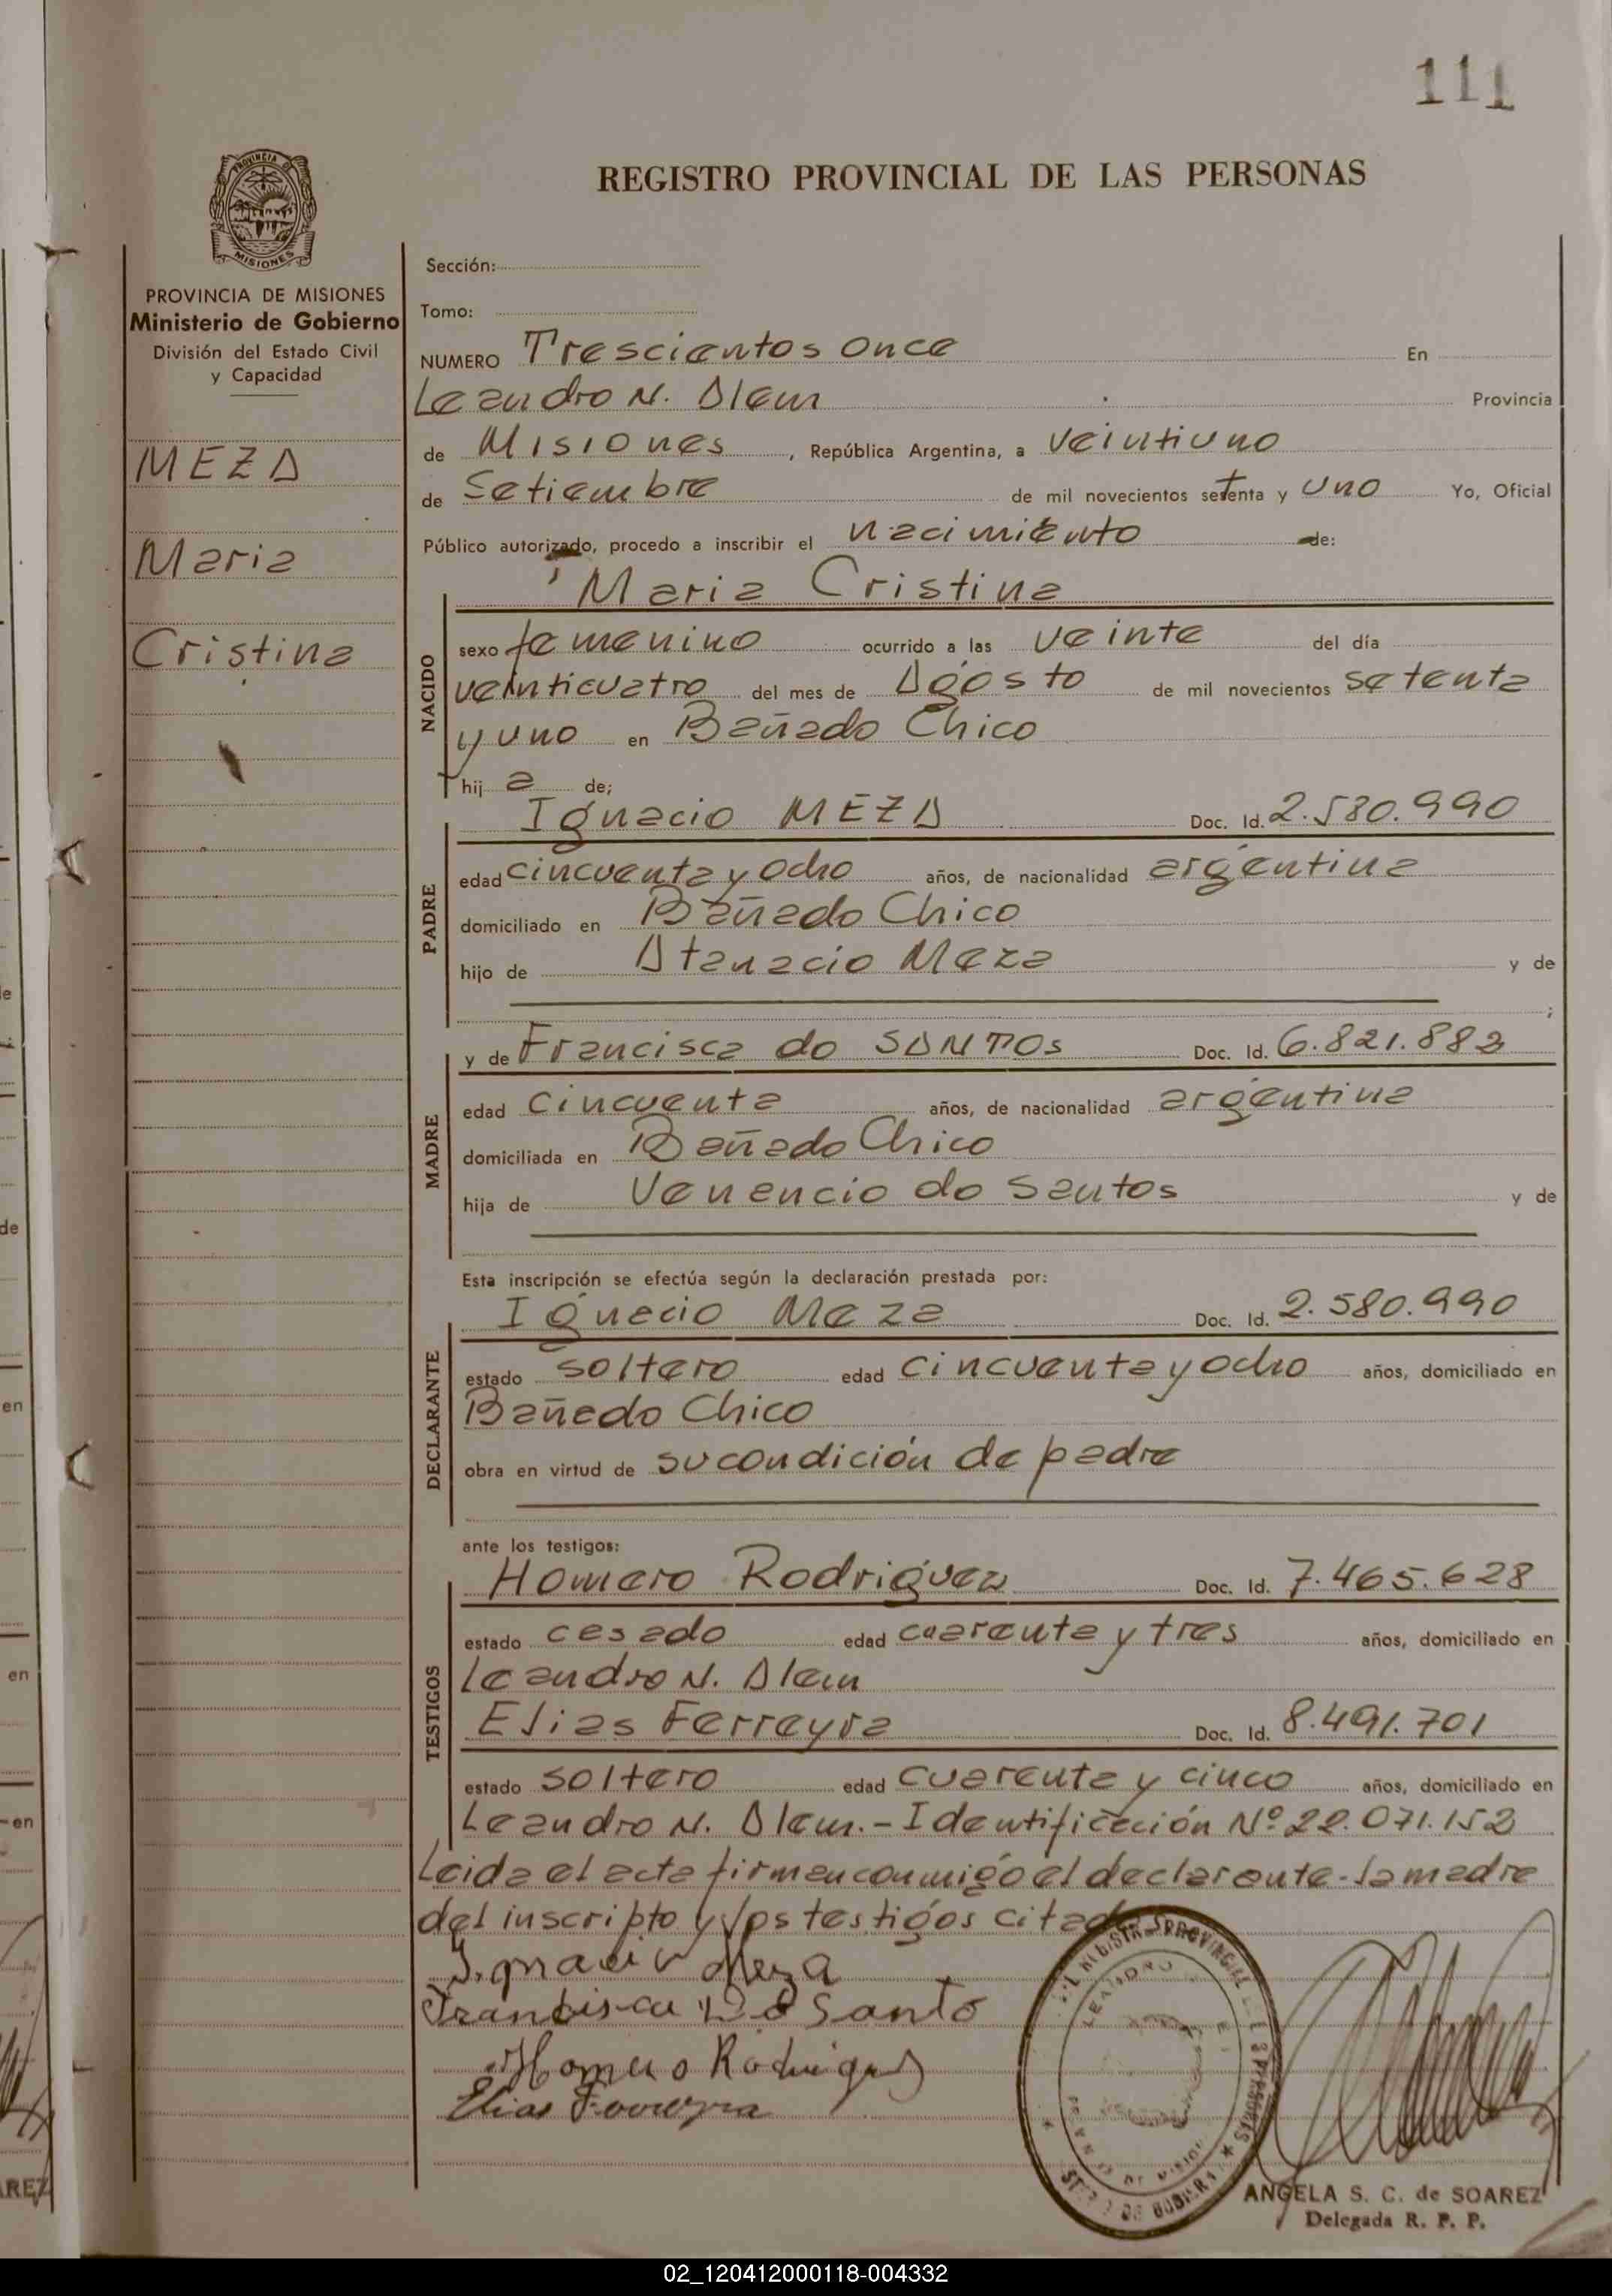 111
REGISTRO PROVINCIAL DE LAS PERSONAS
PROVINCIA DE MISIONES
Ministerio de Gobierno
División del Estado Civil
y Capacidad
MEZA
Maria
Cristina
Sección:
Tomo:
NUMERO Trescientos once En
Leandro N. Alem Provincia
de Misiones, República Argentina, a veintiuno
de Setiembre de mil novecientos setenta y uno Yo, Oficial
Público autorizado, procedo a inscribir el nacimiento de:
Maria Cristina
NACIDO
sexo femenino ocurrido a las veinte del día
veinticuatro del mes de Agosto de mil novecientos setenta
y uno en Bañado Chico
hija de;
Ignacio MEZA Doc. Id. 2.580.990
PADRE
edad cincuenta y ocho años, de nacionalidad argentina
domiciliado en Bañado Chico
hijo de Atanacio Meza y de
y de Francisca do SANTOS Doc. Id. 6.821.882
MADRE
edad cincuenta años, de nacionalidad argentina
domiciliada en Bañado Chico
hija de Venencio do Santos y de
Esta inscripción se efectúa según la declaración prestada por:
Ignacio Meza Doc. Id. 2.580.990
DECLARANTE
estado soltero edad cincuenta y ocho años, domiciliado en
Bañado Chico
obra en virtud de su condición de padre
ante los testigos:
Homero Rodriguez Doc. Id. 7.465.628
TESTIGOS
estado casado edad cuarenta y tres años, domiciliado en
Leandro N. Alem
Elias Ferreyra Doc. Id. 8.491.701
estado soltero edad cuarenta y cinco años, domiciliado en
Leandro N. Alem.- Identificación Nº 22.071.152
Leida el acta firman conmigo el declarante - la madre
del inscripto y los testigos citados
Ignacio Meza
Francisca Do Santo
Homero Rodriguez
Elias Ferreyra
ANGELA S. C. de SOAREZ
Delegada R. P. P.
02_120412000118-004332